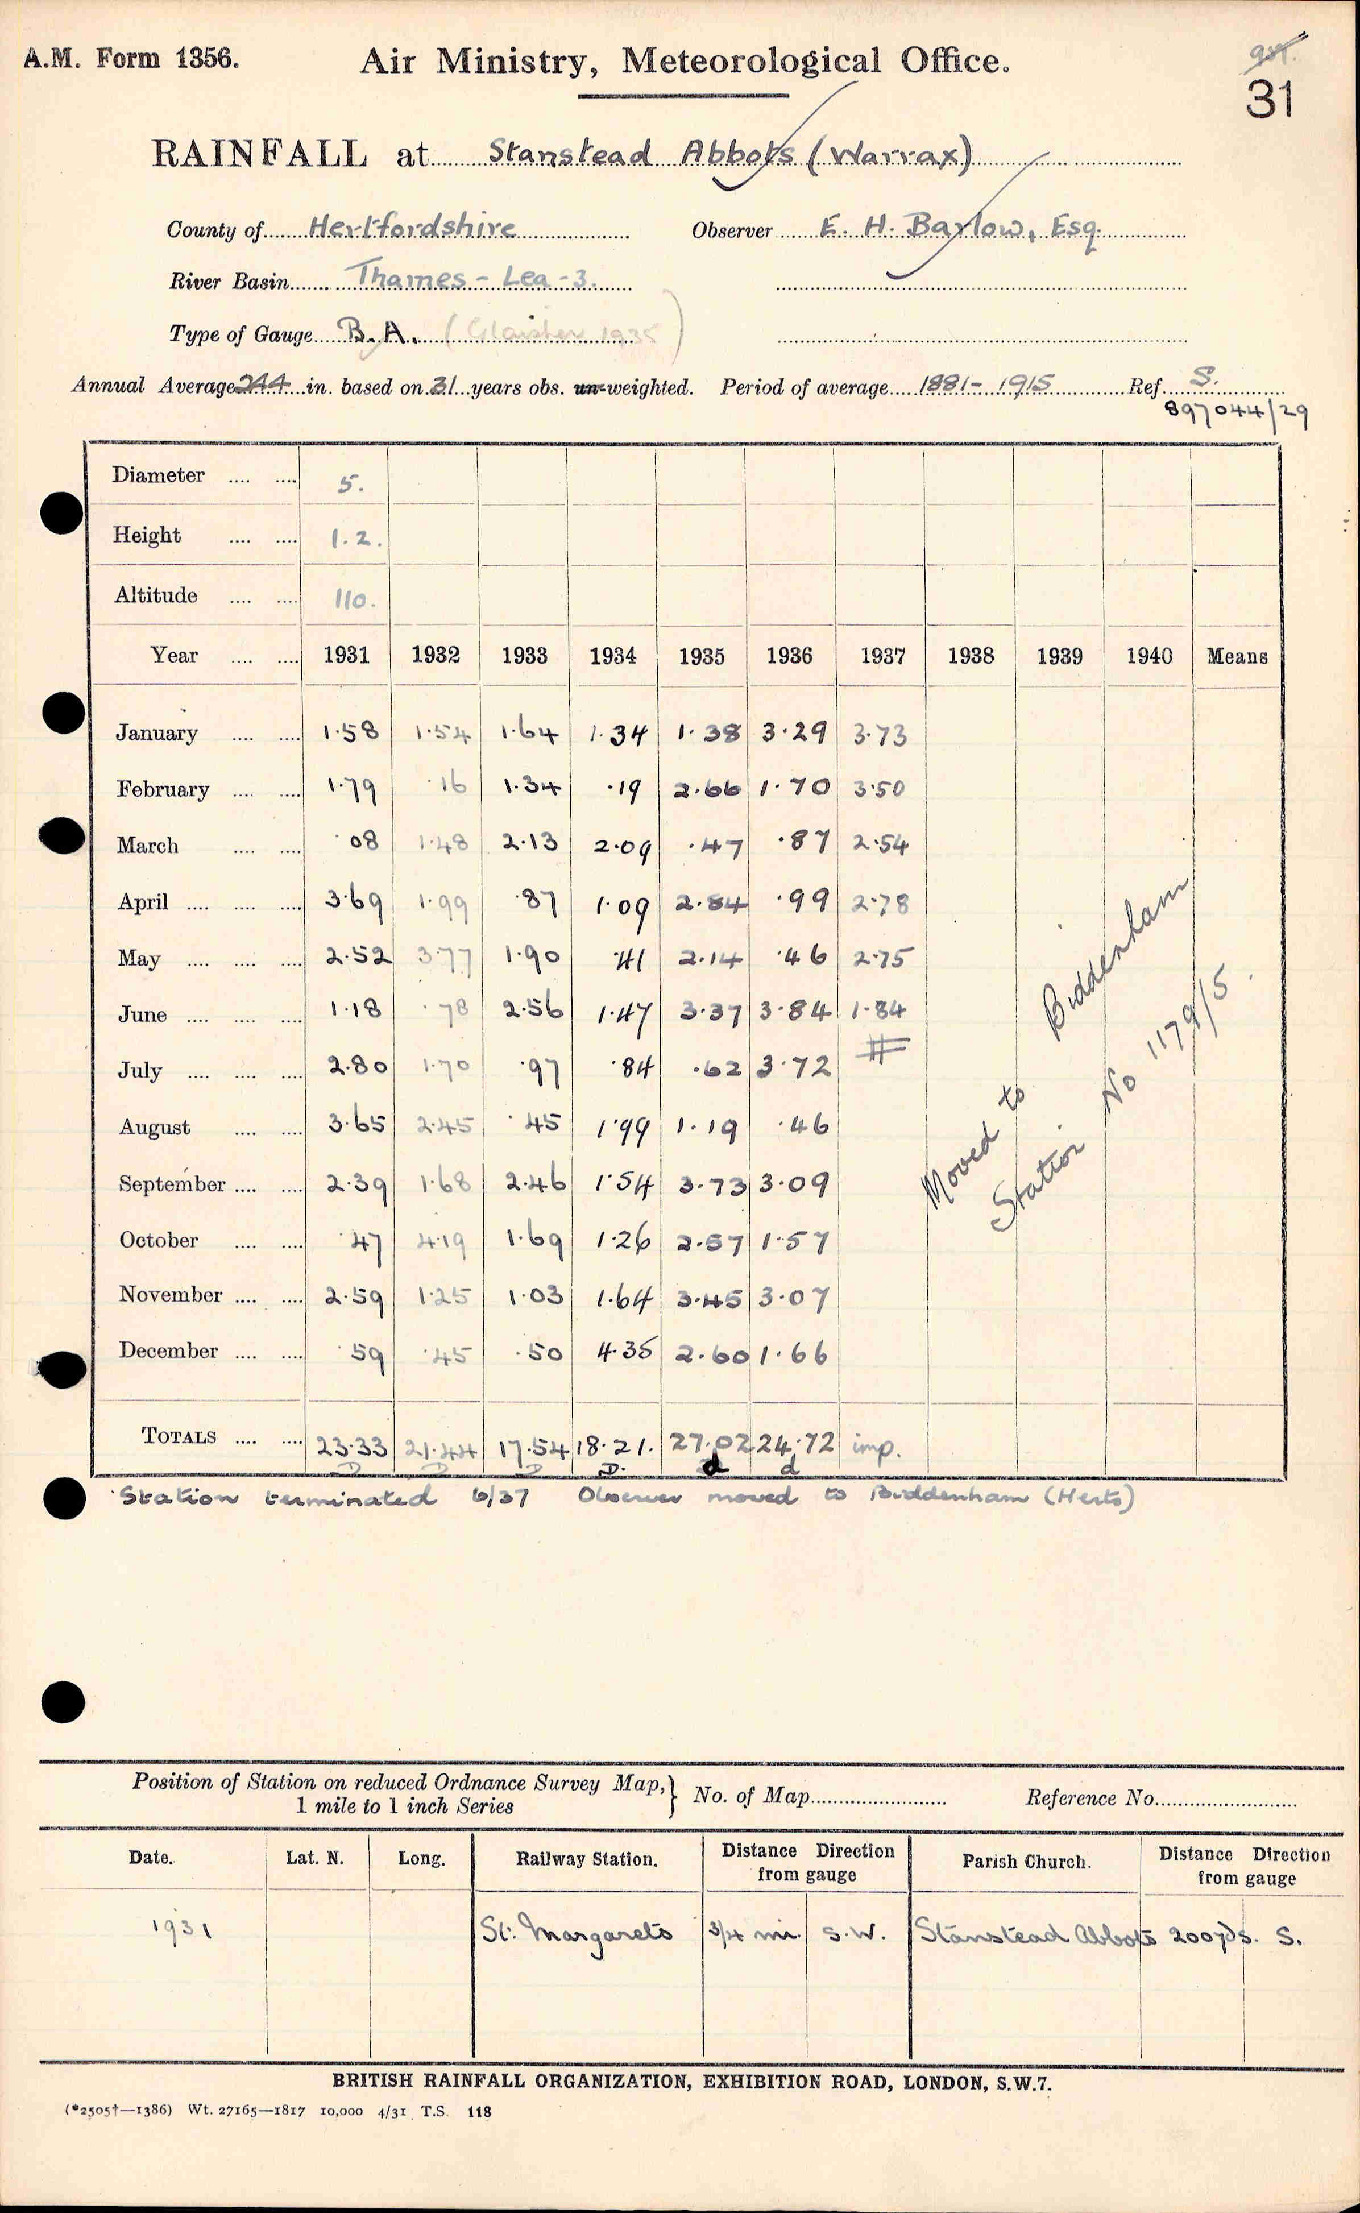 A.M. Form 1356. Air Ministry, Meteorological Office.
31
RAINFALL at Stanstead Abbots (Warrax)
County of Hertfordshire Observer E. H. Barlow, Esq.
River Basin Thames - Lea - 3.
Type of Gauge B.A. (Glaisher 1935)
Annual Average 244 in. based on 31 years obs. un-weighted. Period of average 1881-1915 Ref. S.
897044/29
Diameter 5.
Height 1.2.
Altitude 110.
Year 1931 1932 1933 1934 1935 1936 1937 1938 1939 1940 Means
January 1.58 1.54 1.64 1.34 1.38 3.29 3.73
February 1.79 .16 1.34 .19 2.66 1.70 3.50
March .08 1.48 2.13 2.09 .47 .87 2.54
April 3.69 1.99 .87 1.09 2.84 .99 2.78
May 2.52 3.77 1.90 .41 2.14 .46 2.75
June 1.18 .78 2.56 1.47 3.37 3.84 1.84
July 2.80 1.70 .97 .84 .62 3.72
August 3.65 2.45 .45 1.99 1.19 .46
September 2.39 1.68 2.46 1.54 3.73 3.09
October .47 4.19 1.69 1.26 2.57 1.57
November 2.59 1.25 1.03 1.64 3.45 3.07
December .59 .45 .50 4.35 2.60 1.66
Moved to Biddenham
Station No 1179/5.
TOTALS 23.33 21.44 17.54 18.21. 27.02 24.72 imp.
D D D D. d d
Station terminated 6/37 Observer moved to Biddenham (Herts)
Position of Station on reduced Ordnance Survey Map, } No. of Map Reference No.
1 mile to 1 inch Series
Date. Lat. N. Long. Railway Station. Distance Direction from gauge Parish Church. Distance Direction from gauge
1931 St. Margarets 3/4 mi. S.W. Stanstead Abbots 200yds. S.
BRITISH RAINFALL ORGANIZATION, EXHIBITION ROAD, LONDON, S.W.7.
(*2505†—1386) Wt. 27165—1817 10,000 4/31 T.S. 118